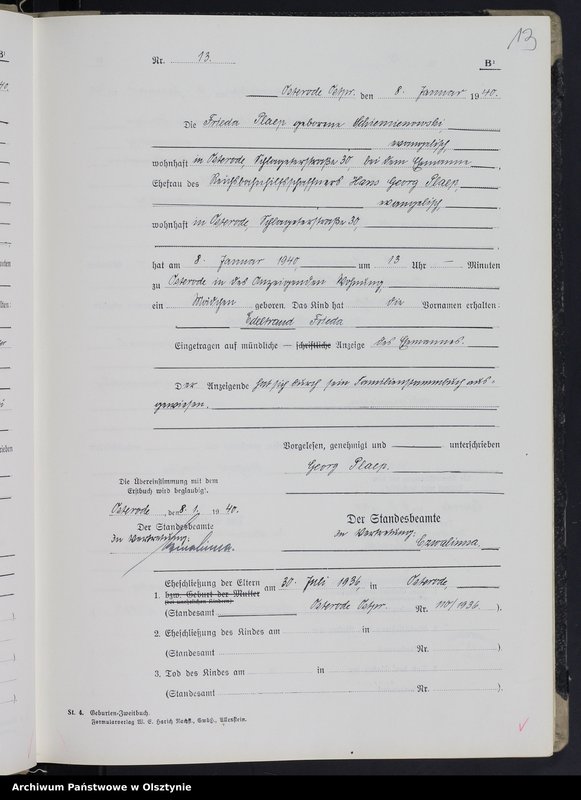 13
Nr. 13. B¹
Osterode Ostpr. den 8. Januar 1940.
Die Frieda Plaep geborene
evangelisch,
wohnhaft in Osterode, Schlageterstraße 30 bei dem Ehemanne,
Ehefrau des Reichsbahnhilfsschaffners Hans Georg Plaep,
evangelisch,
wohnhaft in Osterode, Schlageterstraße 30,
hat am 8. Januar 1940, um 13 Uhr — Minuten
zu Osterode in des Anzeigenden Wohnung
ein Mädchen geboren. Das Kind hat die Vornamen erhalten:
Edeltraud Frieda
Eingetragen auf mündliche — schriftliche Anzeige des Ehemannes.
Der Anzeigende hat sich durch sein Familienstammbuch aus-
gewiesen.
Vorgelesen, genehmigt und unterschrieben
Georg Plaep.
Die Übereinstimmung mit dem
Erstbuch wird beglaubigt.
Osterode, den 8. 1. 1940.
Der Standesbeamte
In Vertretung:
Czwalinna.
Der Standesbeamte
In Vertretung:
Czwalinna
Eheschließung der Eltern am 30. Juli 1936, in Osterode,
1. bzw. Geburt der Mutter
(bei unehelichen Kindern)
(Standesamt Osterode Ostpr. Nr. 110/1936.).
2. Eheschließung des Kindes am in
(Standesamt Nr. )
3. Tod des Kindes am in
(Standesamt Nr. )
St. 4. Geburten-Zweitbuch.
Formularverlag W. E. Harich Nachf., GmbH., Allenstein.
Archiwum Państwowe w Olsztynie